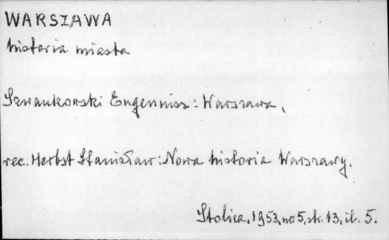 WARSZAWA
historia miasta
Szwankowski Eugeniusz: Warszawa.
rec. Herbst Stanisław: Nowa historia Warszawy.
Stolica, 1953, no 5, str. 13, il. 5.